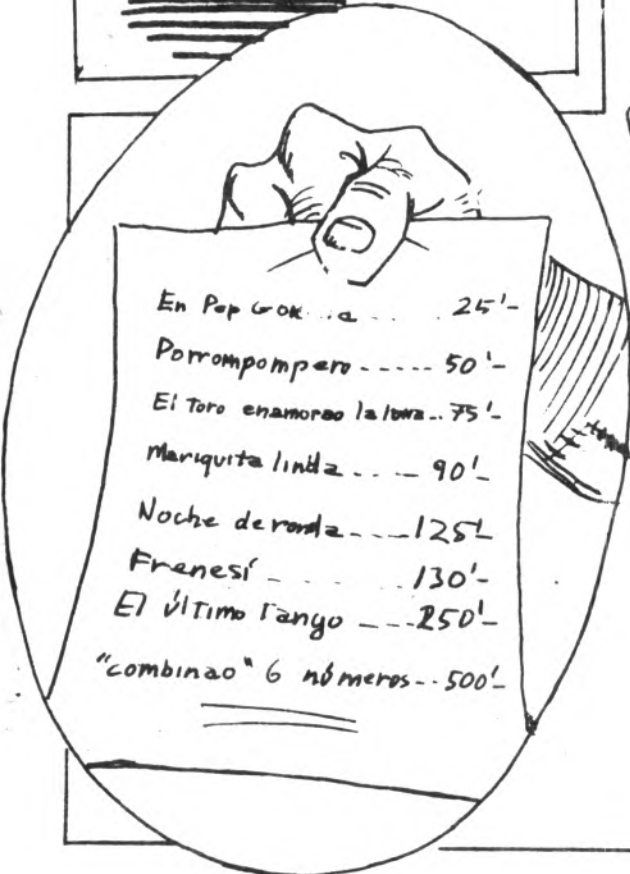 En Pop ..a .... 25'-
Porrompompero ----- 50'-
El Toro enamorao la luna.. 75'-
Mariquita linda ... - 90'-
Noche de ronda ---- 125'-
Frenesí - - ... 130'-
El último Tango --- 250'-
"combinao" 6 números -- 500'-